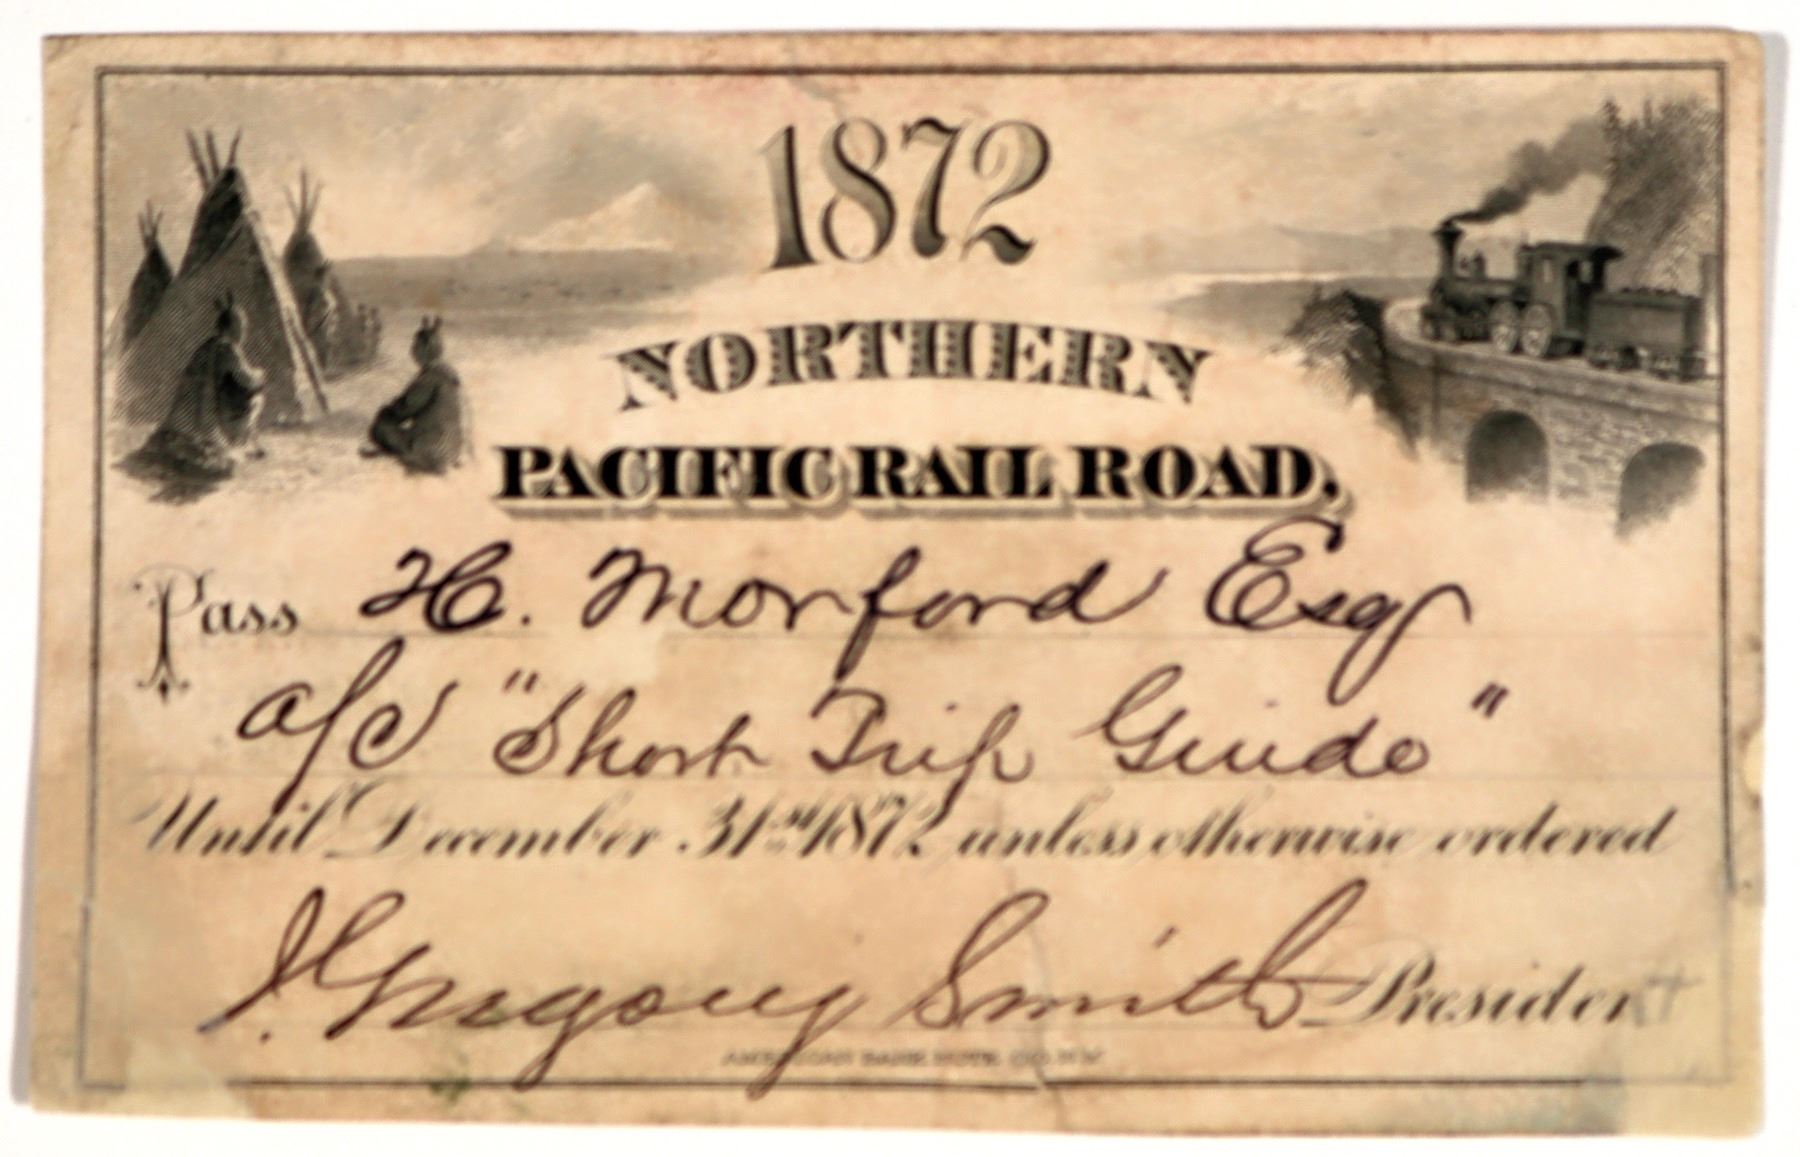 1872
NORTHERN
PACIFIC RAIL ROAD.
Pass H. Morford Esqr
a/c "Short Trip Guide"
Until December 31st 1872 unless otherwise ordered
J Gregory Smith President
AMERICAN BANK NOTE CO. N.Y.